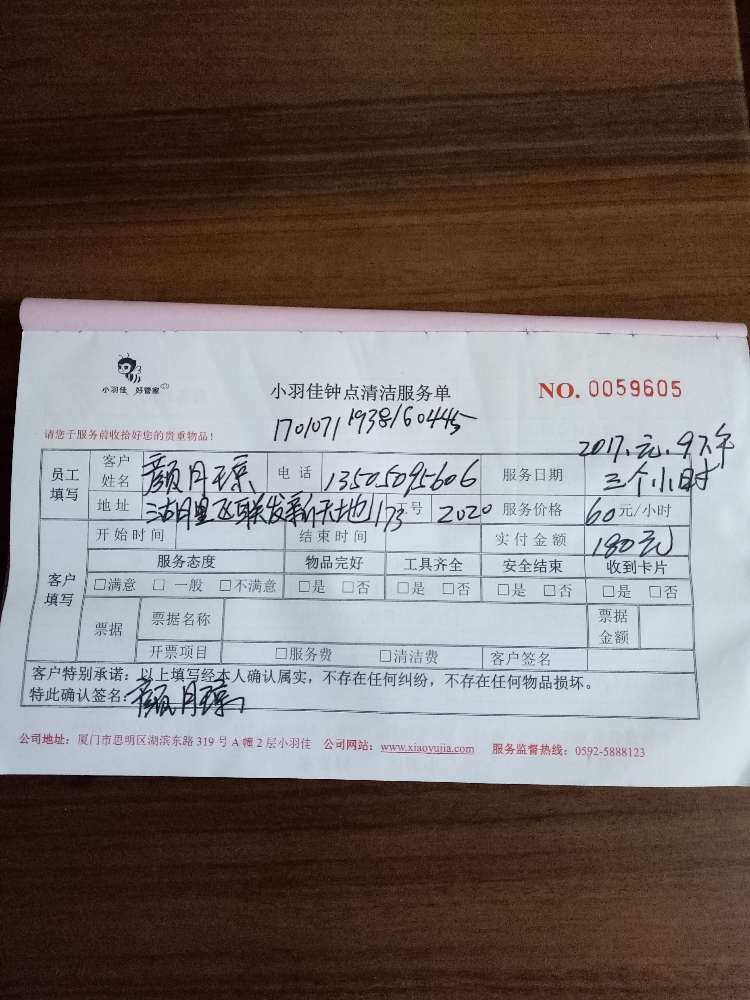 小羽佳 好管家
小羽佳钟点清洁服务单
NO. 0059605
17010711938160445
请您于服务前收拾好您的贵重物品！
员工填写 客户姓名 颜月琼 电话 13505095606 服务日期 2017.元.9下午三个小时
地址 联发新天地173号 2020 服务价格 60元/小时
开始时间 结束时间 实付金额 180元
客户填写 服务态度 物品完好 工具齐全 安全结束 收到卡片
□满意 □一般 □不满意 □是 □否 □是 □否 □是 □否 □是 □否
票据 票据名称 票据金额
开票项目 □服务费 □清洁费 客户签名
客户特别承诺：以上填写经本人确认属实，不存在任何纠纷，不存在任何物品损坏。
特此确认签名：颜月琼
公司地址：厦门市思明区湖滨东路 319 号 A 幢 2 层小羽佳 公司网站：www.xiaoyujia.com 服务监督热线：0592-5888123